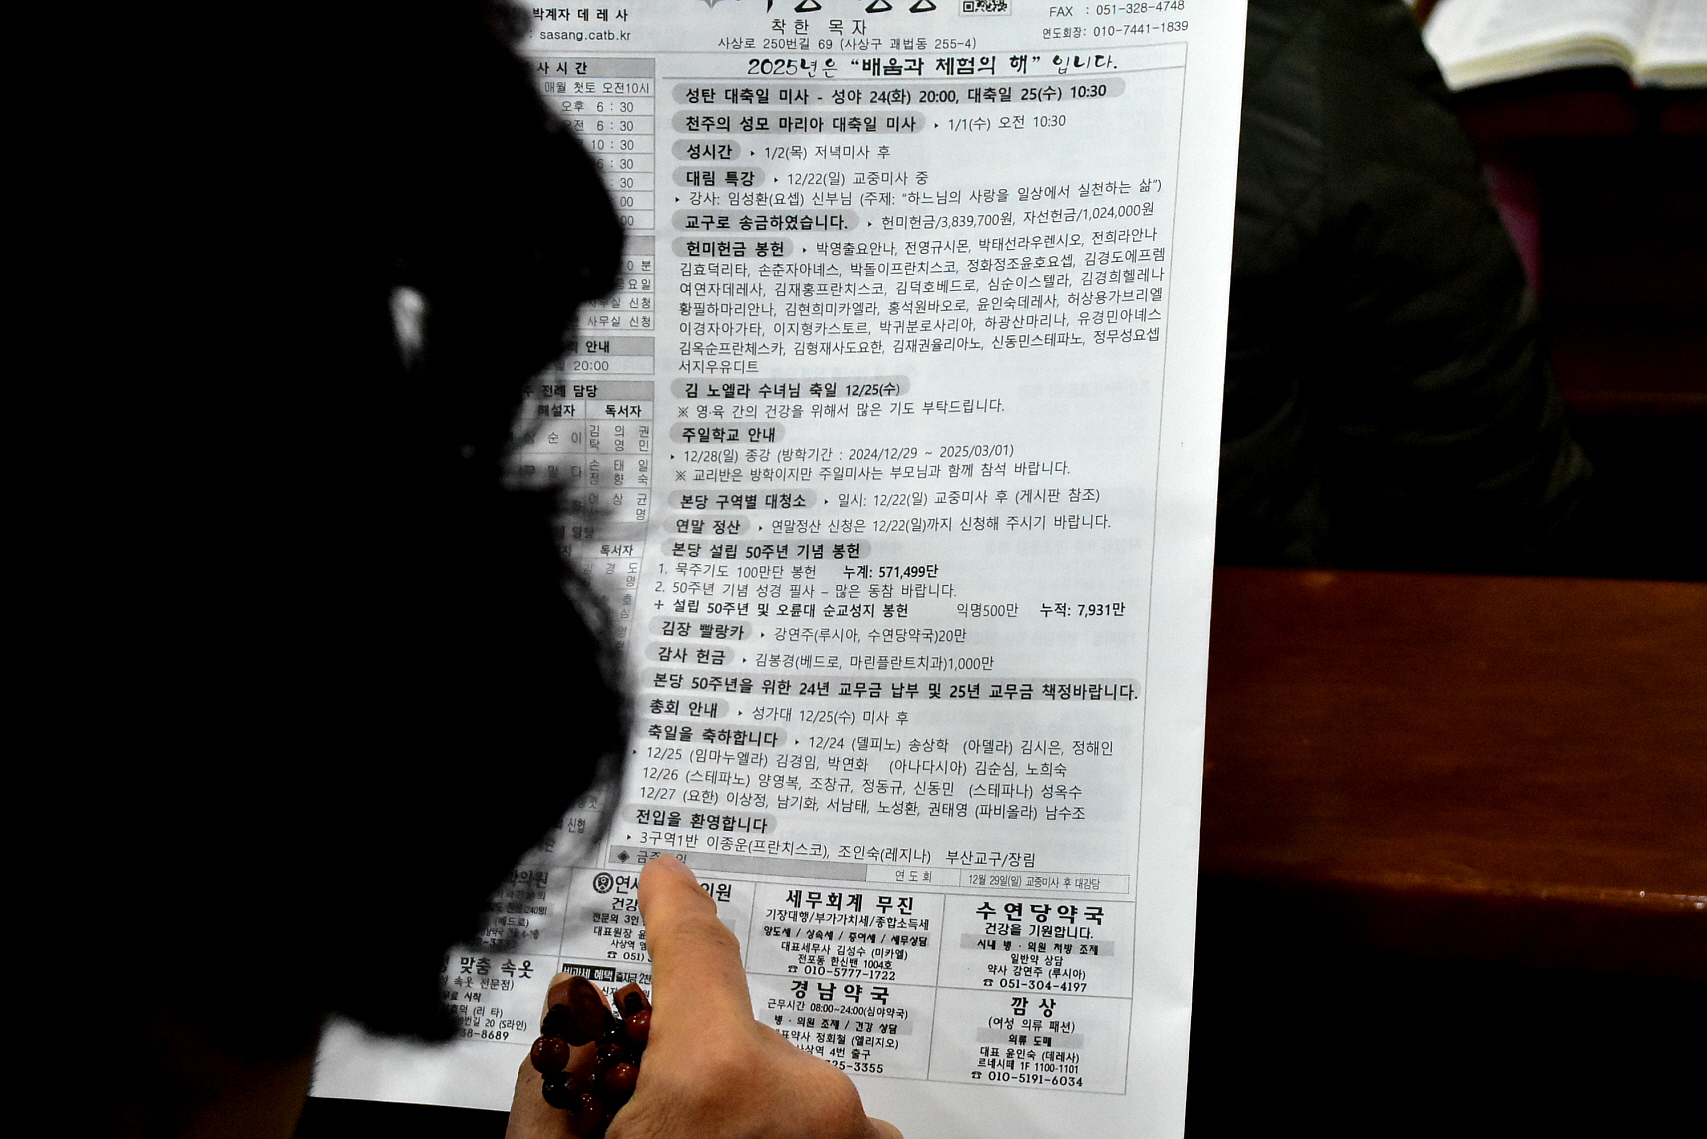 박계자 데레사
: sasang.catb.kr
착한 목자
사상로 250번길 69 (사상구 괘법동 255-4)
FAX : 051-328-4748
연도회장: 010-7441-1839
2025년은 “배움과 체험의 해” 입니다.
성탄 대축일 미사 - 성야 24(화) 20:00, 대축일 25(수) 10:30
천주의 성모 마리아 대축일 미사 ▸ 1/1(수) 오전 10:30
성시간 ▸ 1/2(목) 저녁미사 후
대림 특강 ▸ 12/22(일) 교중미사 중
▸ 강사: 임성환(요셉) 신부님 (주제: “하느님의 사랑을 일상에서 실천하는 삶”)
교구로 송금하였습니다. ▸ 헌미헌금/3,839,700원, 자선헌금/1,024,000원
헌미헌금 봉헌 ▸ 박영출요안나, 전영규시몬, 박태선라우렌시오, 전희라안나
김효덕리타, 손춘자아녜스, 박돌이프란치스코, 정화정조윤호요셉, 김경도에프렘
여연자데레사, 김재홍프란치스코, 김덕호베드로, 심순이스텔라, 김경희헬레나
황필하마리안나, 김현희미카엘라, 홍석원바오로, 윤인숙데레사, 허상용가브리엘
이경자아가타, 이지형카스토르, 박귀분로사리아, 하광산마리나, 유경민아녜스
김옥순프란체스카, 김형재사도요한, 김재권율리아노, 신동민스테파노, 정무성요셉
서지우유디트
김 노엘라 수녀님 축일 12/25(수)
※ 영·육 간의 건강을 위해서 많은 기도 부탁드립니다.
주일학교 안내
▸ 12/28(일) 종강 (방학기간 : 2024/12/29 ~ 2025/03/01)
※ 교리반은 방학이지만 주일미사는 부모님과 함께 참석 바랍니다.
본당 구역별 대청소 ▸ 일시: 12/22(일) 교중미사 후 (게시판 참조)
연말 정산 ▸ 연말정산 신청은 12/22(일)까지 신청해 주시기 바랍니다.
본당 설립 50주년 기념 봉헌
1. 묵주기도 100만단 봉헌 누계: 571,499단
2. 50주년 기념 성경 필사 – 많은 동참 바랍니다.
+ 설립 50주년 및 오륜대 순교성지 봉헌 익명500만 누적: 7,931만
김장 빨랑카 ▸ 강연주(루시아, 수연당약국)20만
감사 헌금 ▸ 김봉경(베드로, 마린플란트치과)1,000만
본당 50주년을 위한 24년 교무금 납부 및 25년 교무금 책정바랍니다.
총회 안내 ▸ 성가대 12/25(수) 미사 후
축일을 축하합니다 ▸ 12/24 (델피노) 송상학 (아델라) 김시은, 정해인
▸ 12/25 (임마누엘라) 김경임, 박연화 (아나다시아) 김순심, 노희숙
12/26 (스테파노) 양영복, 조창규, 정동규, 신동민 (스테파나) 성옥수
12/27 (요한) 이상정, 남기화, 서남태, 노성환, 권태영 (파비올라) 남수조
전입을 환영합니다
▸ 3구역1반 이종운(프란치스코), 조인숙(레지나) 부산교구/장림
연도회 12월 29일(일) 교중미사 후 대강당
사 시 간
매월 첫토 오전10시
오후 6 : 30
오전 6 : 30
10 : 30
사무실 신청
안내
20:00
전례 담당
해설자 독서자
김 의 권
탁 영 민
손 태 일
정 향 숙
독서자
세무회계 무진
기장대행/부가가치세/종합소득세
양도세 / 상속세 / 증여세 / 세무상담
대표세무사 김성수 (미카엘)
전포동 한신밴 1004호
☎ 010-5777-1722
수연당약국
건강을 기원합니다.
시내 병·의원 처방 조제
일반약 상담
약사 강연주 (루시아)
☎ 051-304-4197
경남약국
근무시간 08:00~24:00(심야약국)
병·의원 조제 / 건강 상담
정회철 (엘리지오)
사상역 4번 출구
깜상
(여성 의류 패션)
의류 도매
대표 윤인숙 (데레사)
르네시떼 1F 1100-1101
☎ 010-5191-6034
맞춤 속옷
속옷 전문점)